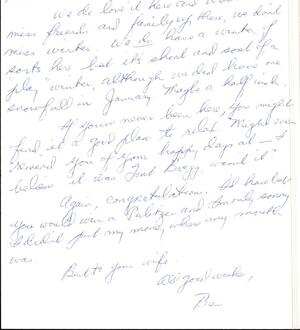 We do love it here and
miss friends and family up there, we don't
miss winter. We do have a winter of
sorts here but it's short and sort of a
"play" winter, although we did have one
snowfall in January. Maybe a half inch.
If you've never been here, you might
find it a good place to relax. Might even
remind you of your happy days at — I
believe it was Fort Bragg, wasn't it?
Again, congratulations. I'd have bet
you would win a Pulitzer and I'm only sorry
I didn't put my money where my mouth
was.
Best to your wife.
All good wishes,
Ben